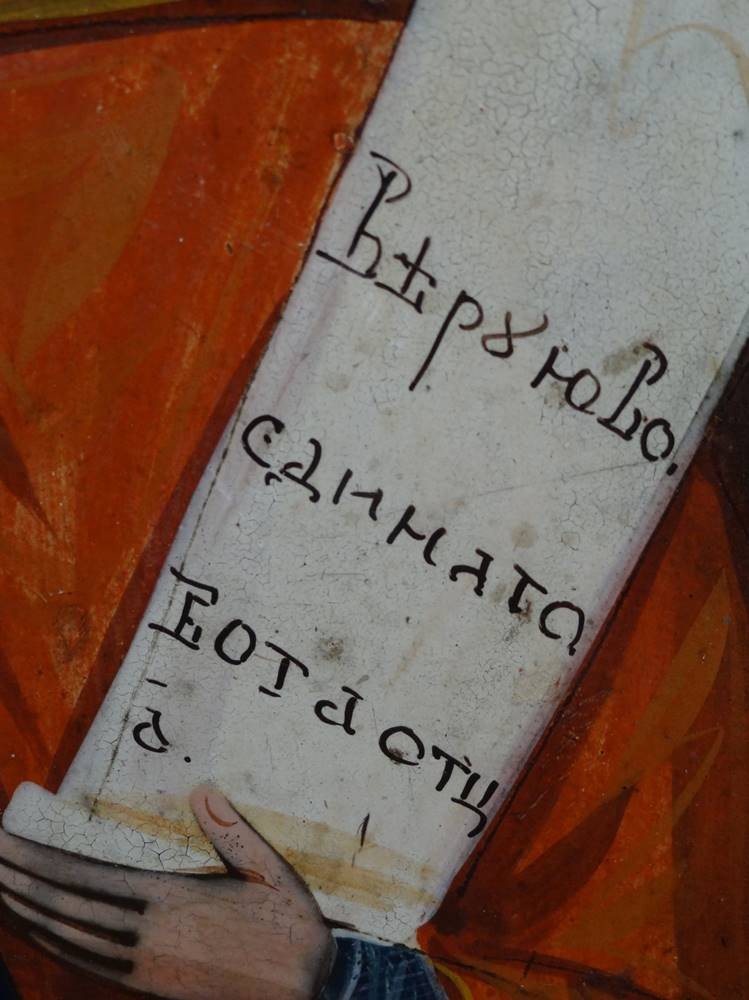 Вѣрꙋюво.
єдинаго
Бога ѻтц
а҃.